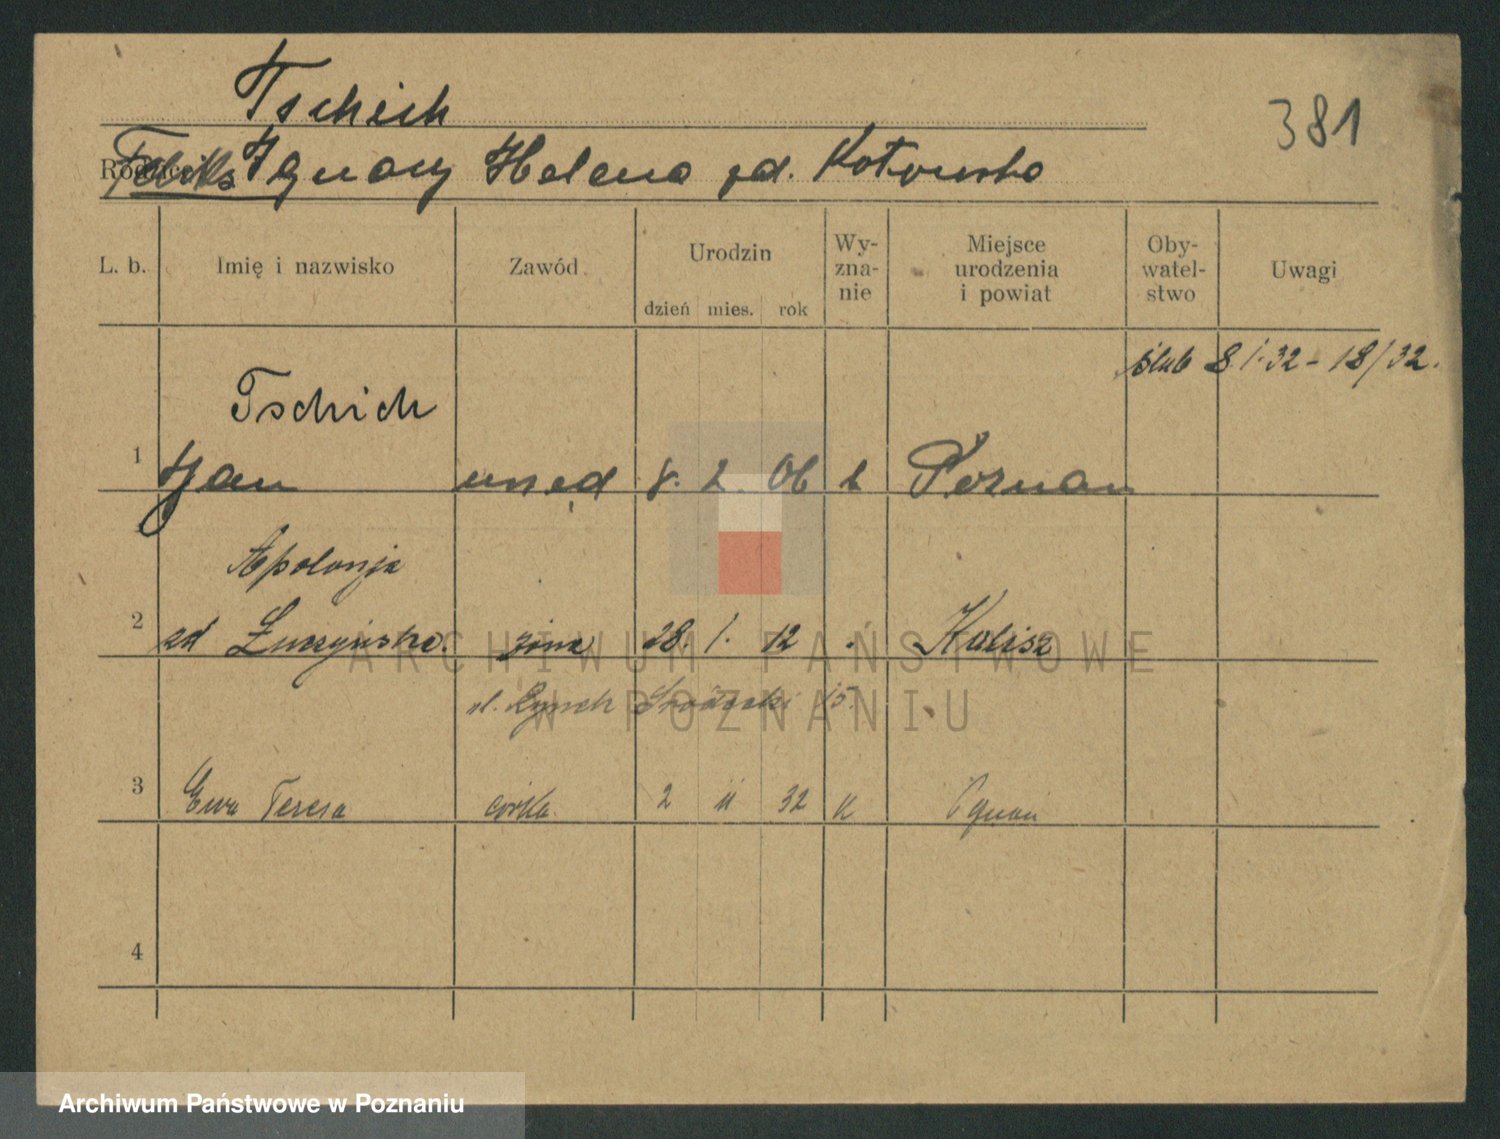 Tschich
381
Rodzice Ignacy Helena zd. Kotowska
L. b. Imię i nazwisko Zawód Urodzin dzień mies. rok Wy-zna-nie Miejsce urodzenia i powiat Oby-watel-stwo Uwagi
ślub 8.1.32 - 18/32.
Tschich
1 Jan urzęd 8. 2. 06 k Poznan
Apolonja
2 zd Łuczyńska. żona 28. 1. 12 Kalisz
ul. Rynek Śródecki 15.
3 Ewa Teresa córka. 2 II 32 k Pznań
4
ARCHIWUM PAŃSTWOWE
W POZNANIU
Archiwum Państwowe w Poznaniu